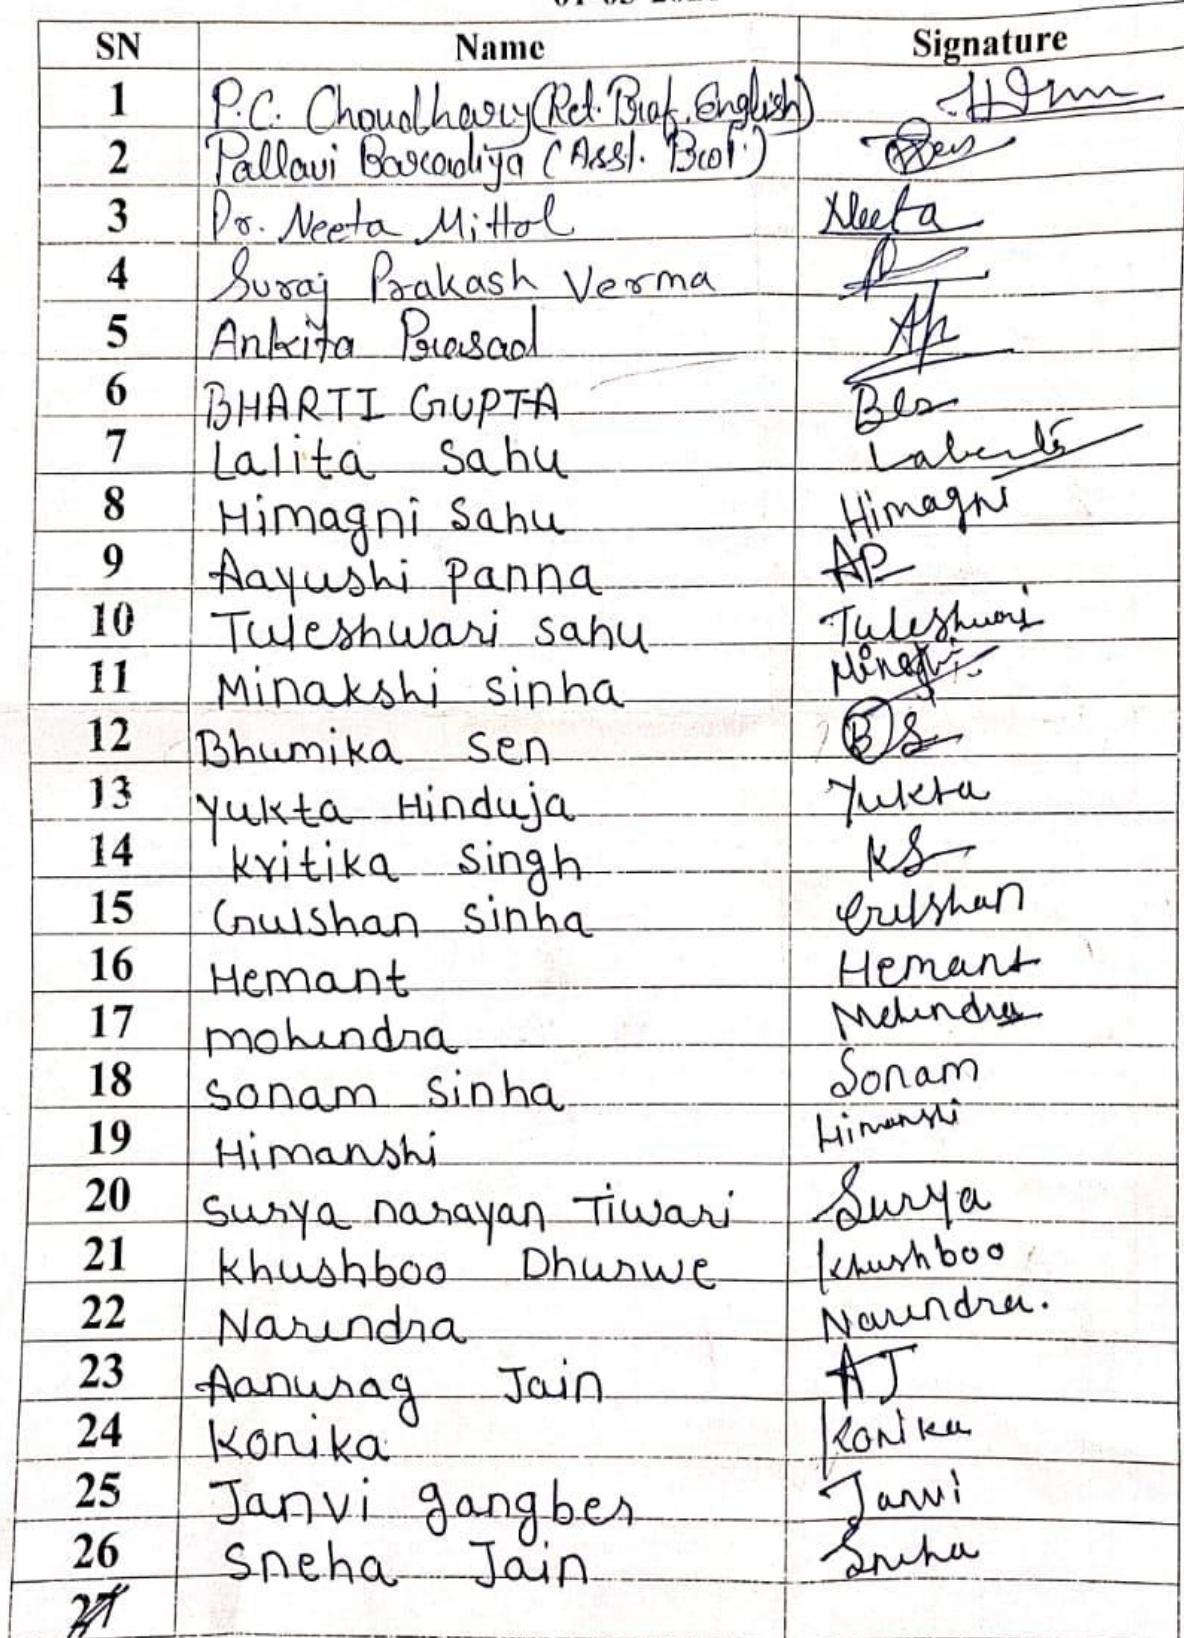 SN Name Signature
1 P.C. Choudhary (Ret. Prof. English)
2 Pallavi (Asst. Prof.)
3 Dr. Neeta Mittal Neeta
4 Suraj Prakash Verma
5 Ankita Prasad AP
6 BHARTI GUPTA
7 Lalita Sahu
8 Himagni Sahu Himagni
9 Aayushi Panna AP
10 Tuleshwari Sahu Tuleshwari
11 Minakshi Sinha
12 Bhumika Sen BS
13 Yukta Hinduja Yukta
14 Kritika Singh KS
15 Gulshan Sinha Gulshan
16 Hemant Hemant
17 Mohendra Mehendra
18 Sonam Sinha Sonam
19 Himanshi Himanshi
20 Surya narayan Tiwari Surya
21 Khushboo Dhurwe Khushboo
22 Narendra Narendra.
23 Aanurag Jain AJ
24 Konika Konika
25 Janvi gangber Janvi
26 Sneha Jain Sneha
27